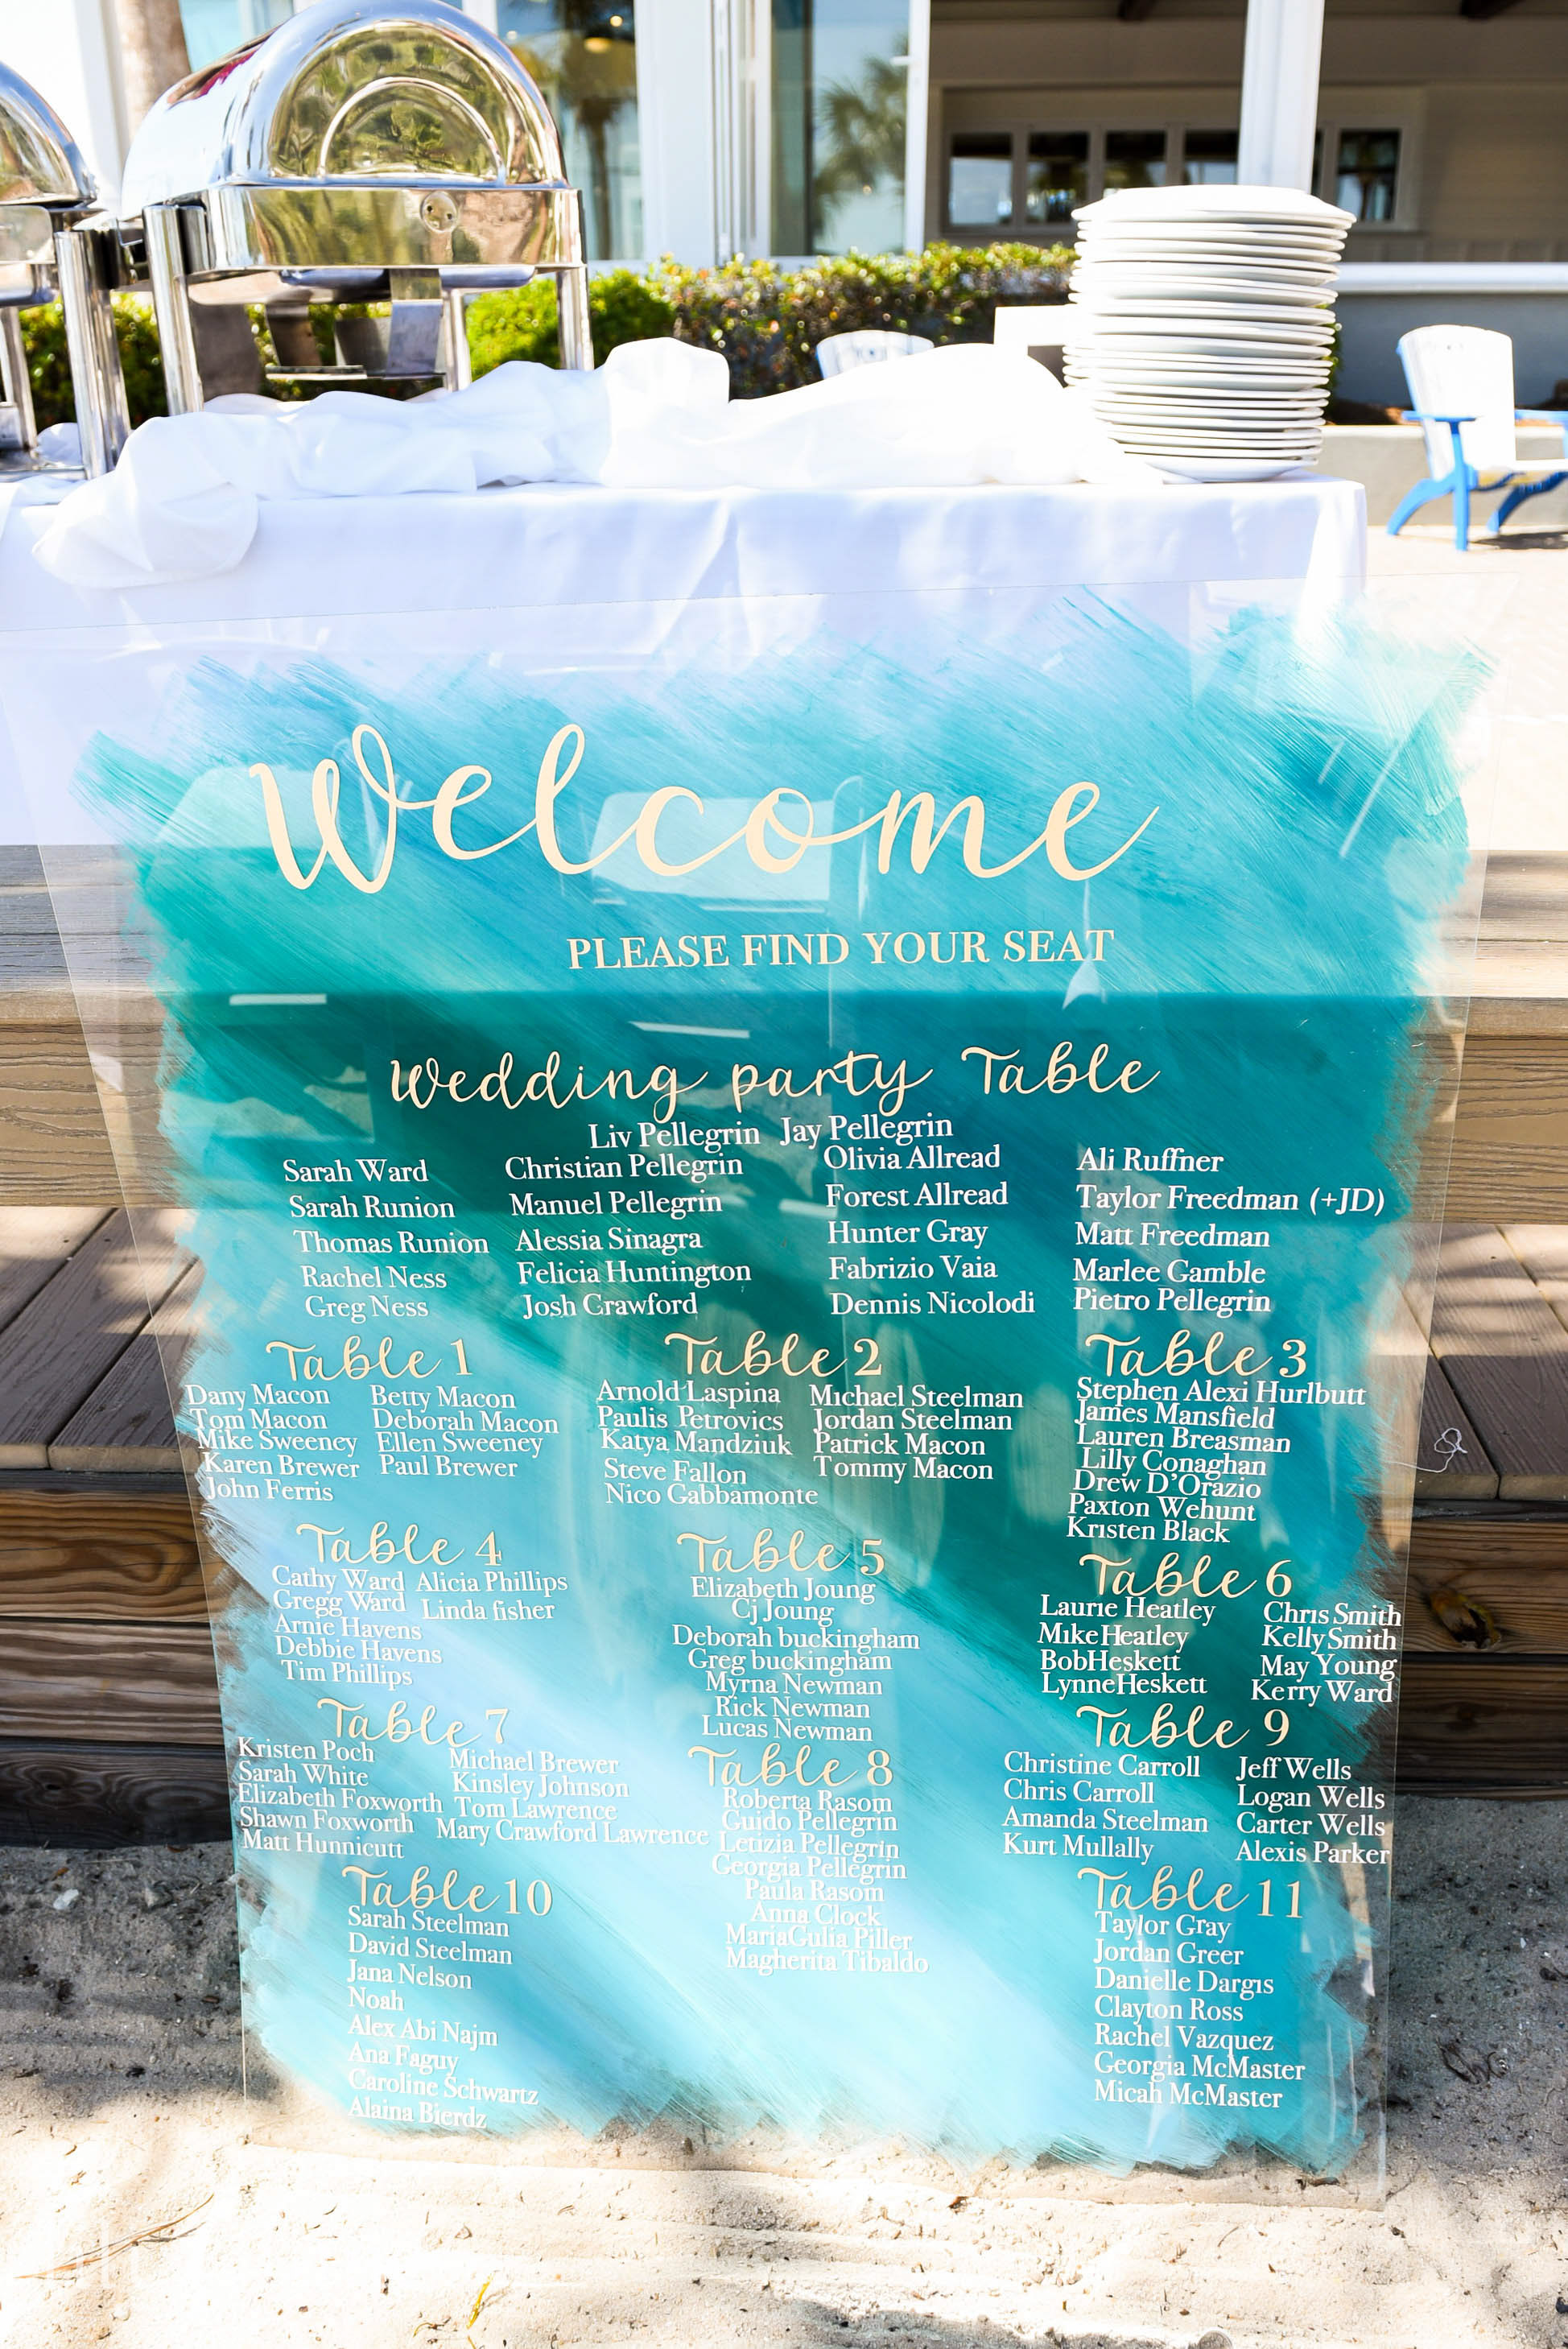 Welcome
PLEASE FIND YOUR SEAT
Wedding party Table
Liv Pellegrin Jay Pellegrin
Sarah Ward
Sarah Runion
Thomas Runion
Rachel Ness
Greg Ness
Christian Pellegrin
Manuel Pellegrin
Alessia Sinagra
Felicia Huntington
Josh Crawford
Olivia Allread
Forest Allread
Hunter Gray
Fabrizio Vaia
Dennis Nicolodi
Ali Ruffner
Taylor Freedman (+JD)
Matt Freedman
Marlee Gamble
Pietro Pellegrin
Table 1
Dany Macon
Tom Macon
Mike Sweeney
Karen Brewer
John Ferris
Betty Macon
Deborah Macon
Ellen Sweeney
Paul Brewer
Table 2
Arnold Laspina
Paulis Petrovics
Katya Mandziuk
Steve Fallon
Nico Gabbamonte
Michael Steelman
Jordan Steelman
Patrick Macon
Tommy Macon
Table 3
Stephen Alexi Hurlbutt
James Mansfield
Lauren Breasman
Lilly Conaghan
Drew D'Orazio
Paxton Wehunt
Kristen Black
Table 4
Cathy Ward
Gregg Ward
Arnie Havens
Debbie Havens
Tim Phillips
Alicia Phillips
Linda fisher
Table 5
Elizabeth Joung
Cj Joung
Deborah buckingham
Greg buckingham
Myrna Newman
Rick Newman
Lucas Newman
Table 6
Laurie Heatley
Mike Heatley
BobHeskett
LynneHeskett
Chris Smith
Kelly Smith
May Young
Kerry Ward
Table 7
Kristen Poch
Sarah White
Elizabeth Foxworth
Shawn Foxworth
Matt Hunnicutt
Michael Brewer
Kinsley Johnson
Tom Lawrence
Mary Crawford Lawrence
Table 8
Roberta Rasom
Guido Pellegrin
Letizia Pellegrin
Georgia Pellegrin
Paula Rasom
Anna Clock
MariaGulia Piller
Magherita Tibaldo
Table 9
Christine Carroll
Chris Carroll
Amanda Steelman
Kurt Mullally
Jeff Wells
Logan Wells
Carter Wells
Alexis Parker
Table 10
Sarah Steelman
David Steelman
Jana Nelson
Noah
Alex Abi Najm
Ana Faguy
Caroline Schwartz
Alaina Bierdz
Table 11
Taylor Gray
Jordan Greer
Danielle Dargis
Clayton Ross
Rachel Vazquez
Georgia McMaster
Micah McMaster